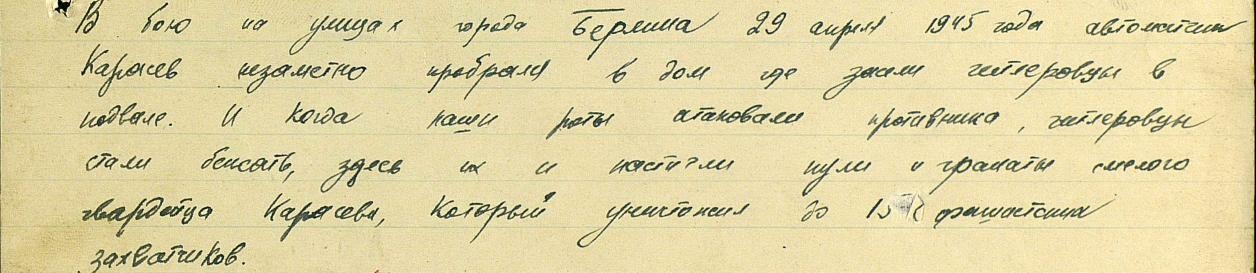 В бою на улицах города Берлина 29 апреля 1945 года автоматчик
Карасев незаметно пробрался в дом где засели гитлеровцы в
подвале. И когда наши роты атаковали противника, гитлеровцы
стали бежать, здесь их и настигли пули и гранаты смелого
гвардейца Карасева, который уничтожил до 15 фашистских
захватчиков.